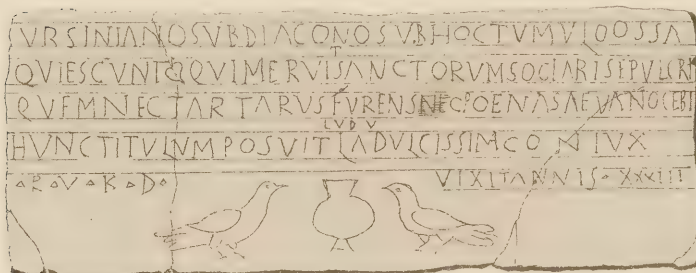 VRSINIANOSVBDIACONOSVBHOCTVMVLOOSSA
T
QVIESCVNTQVIMERVISANCTORVMSOCIARISEPVLCRI
QVEMNECTARTARUSFVRENSNECPOENASAEVANOCEBI
LVDV
HVNCTITVLVMPOSVITLADVLCISSIMCONIVX
▵R▵V▵K▵D▵ VIXITANNIS▵XXXIII